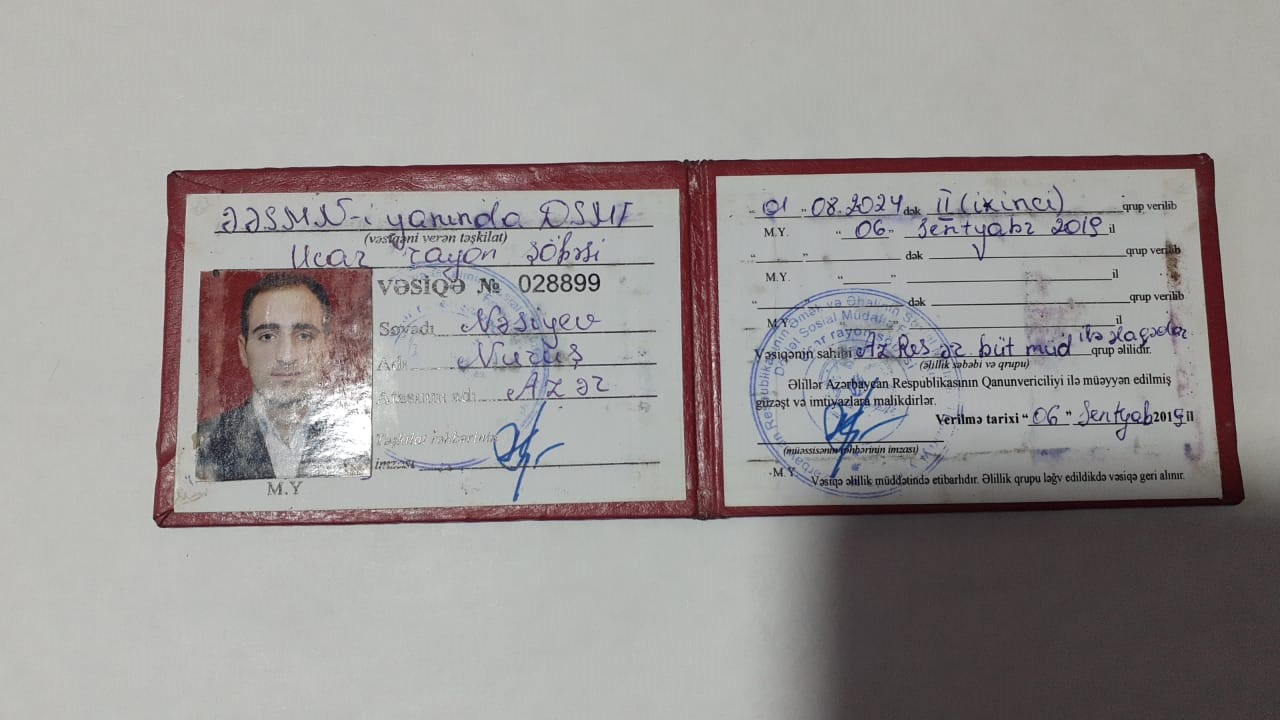 ƏƏSMN-i yanında DSMF
(vəsiqəni verən təşkilat)
Ucar rayon şöbəsi
VƏSİQƏ № 028899
Soyadı Nəsiyev
Adı Nuruş
Atasının adı Azər
Təşkilat rəhbərinin
imzası
M.Y
"01" 08.2024 dək II (ikinci) qrup verilib
M.Y. "06" Sentyabr 2019 il
" " dək qrup verilib
M.Y. " " il
" dək qrup verilib
M.Y. il
Vəsiqənin sahibi Az Res ər büt müd ilə əlaqədar qrup əlilidir.
(əlillik səbəbi və qrupu)
Əlillər Azərbaycan Respublikasının Qanunvericiliyi ilə müəyyən edilmiş
güzəşt və imtiyazlara malikdirlər.
Verilmə tarixi "06" Sentyab 2019 il
(müəssisənin rəhbərinin imzası)
M.Y. Vəsiqə əlillik müddətində etibarlıdır. Əlillik qrupu ləğv edildikdə vəsiqə geri alınır.